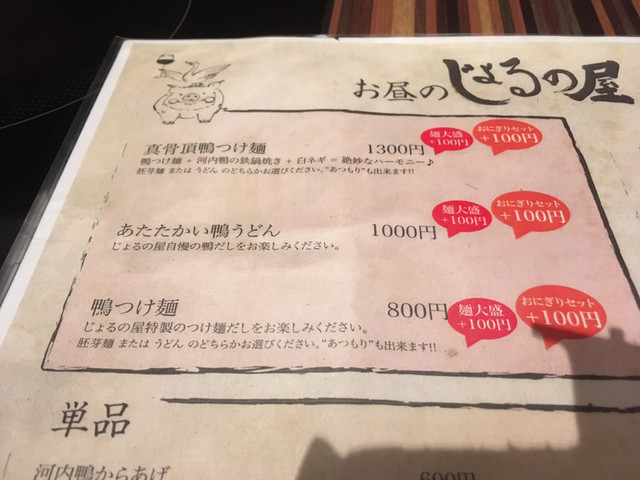 お昼のじょるの屋
真骨頂鴨つけ麺 1300円 麺大盛+100円 おにぎりセット+100円
鴨つけ麺 + 河内鴨の鉄鍋焼き + 白ネギ = 絶妙なハーモニー♪
胚芽麺 または うどん のどちらかお選びください。"あつもり"も出来ます!!
あたたかい鴨うどん 1000円 麺大盛+100円 おにぎりセット+100円
じょるの屋自慢の鴨だしをお楽しみください。
鴨つけ麺 800円 麺大盛+100円 おにぎりセット+100円
じょるの屋特製のつけ麺だしをお楽しみください。
胚芽麺 または うどん のどちらかお選びください。"あつもり"も出来ます!!
単品
河内鴨からあげ 600円